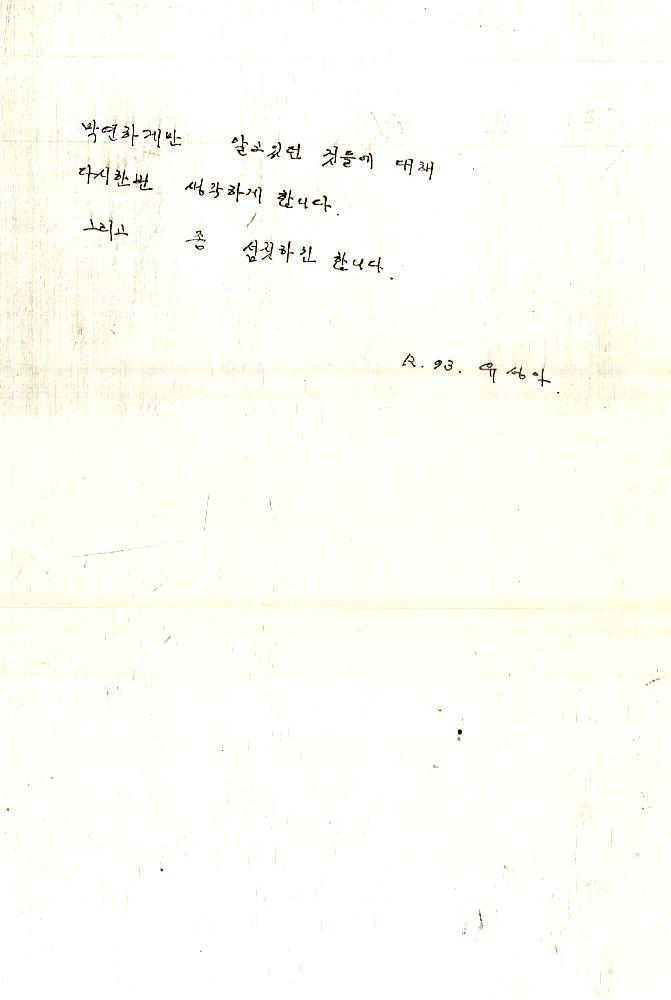 막연하게만 알고있던 것들에 대해
다시한번 생각하게 합니다.
그리고 좀 섬찟하긴 합니다.
R. 93. 유성아.